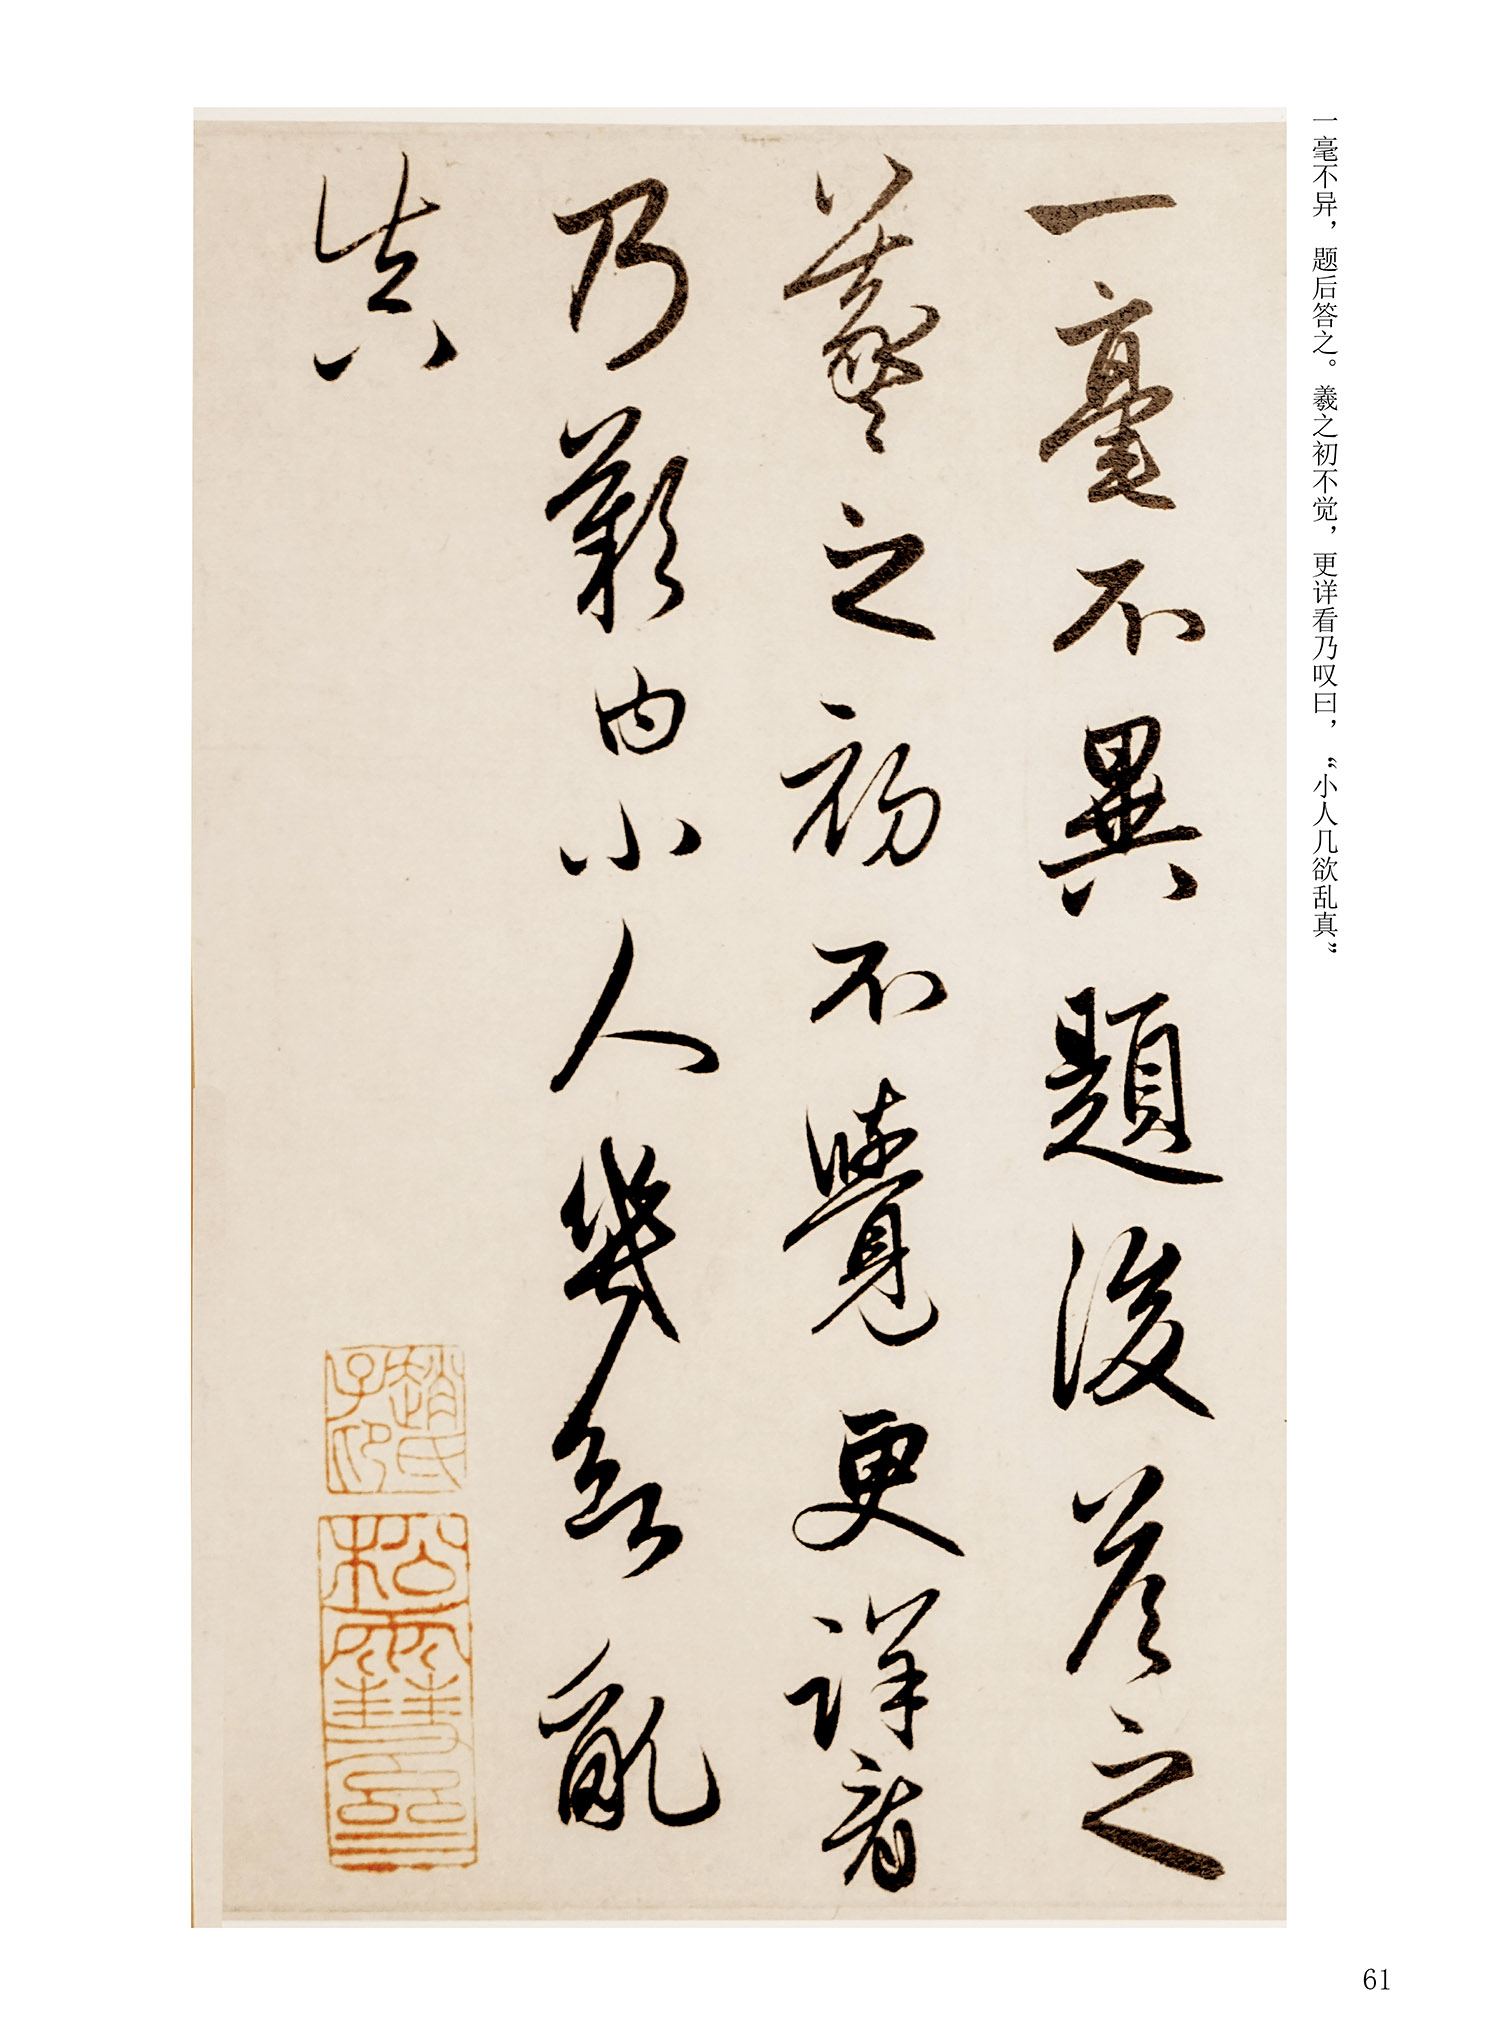 一毫不异，题后答之。羲之初不觉，更详看乃叹曰，“小人几欲乱真”
一毫不異題後答之
羲之初不覺更詳看
乃歎曰小人幾欲亂
真
趙氏子印
松雪齋
61